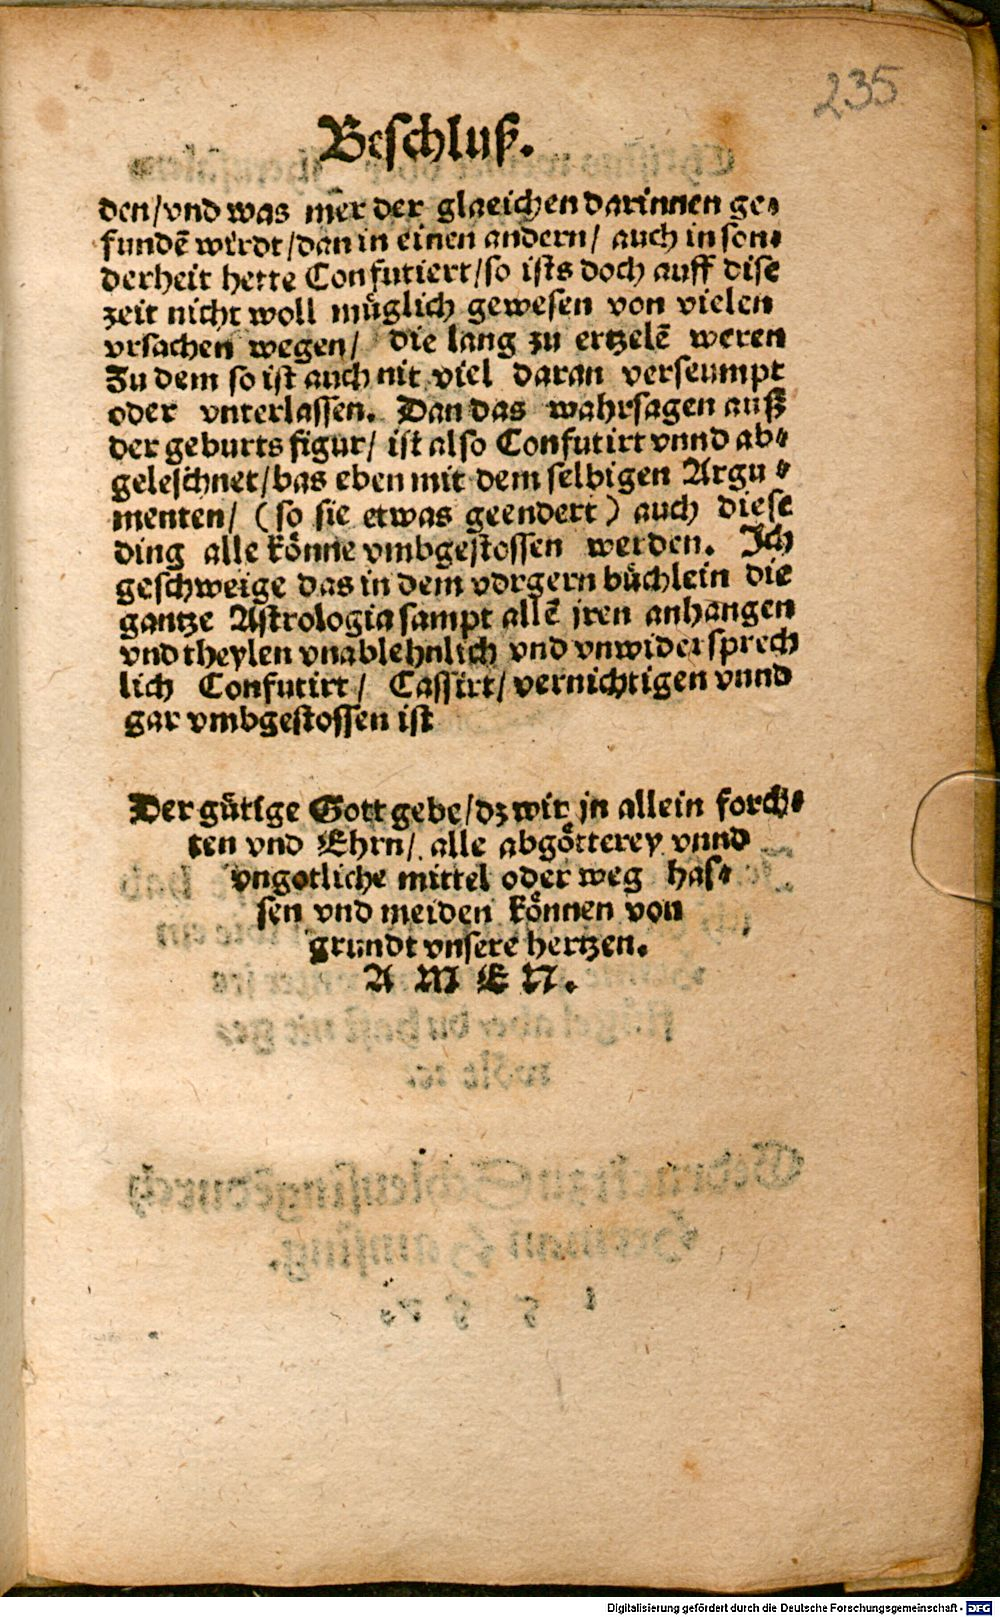 235
Beschluß.
den/vnd was mer der glaeichen darinnen ge⸗
fundē wirdt/dan in einen andern/ auch in son⸗
derheit hette Confutiert/so ists doch auff dise
zeit nicht woll müglich gewesen von vielen
vrsachen wegen/ die lang zu ertzelē weren
Zu dem so ist auch nit viel daran verseumpt
oder vnterlassen. Dan das wahrsagen auß
der geburts figur/ ist also Confutirt vnnd ab⸗
geleschnet/das eben mit dem selbigen Argu⸗
menten/ (so sie etwas geendert) auch diese
ding alle könne vmbgestossen werden. Ich
geschweige das in dem vorgern büchlein die
gantze Astrologia sampt allē jren anhangen
vnd theylen vnablehnlich vnd vnwidersprech
lich Confutirt/ Cassirt/ vernichtigen vnnd
gar vmbgestossen ist
Der gütige Gott gebe/dz wir jn allein forch⸗
ten vnd Ehrn/ alle abgötterey vnnd
vngotliche mittel oder weg has⸗
sen vnd meiden können von
grundt vnsere hertzen.
A M E N.
Digitalisierung gefördert durch die Deutsche Forschungsgemeinschaft - DFG